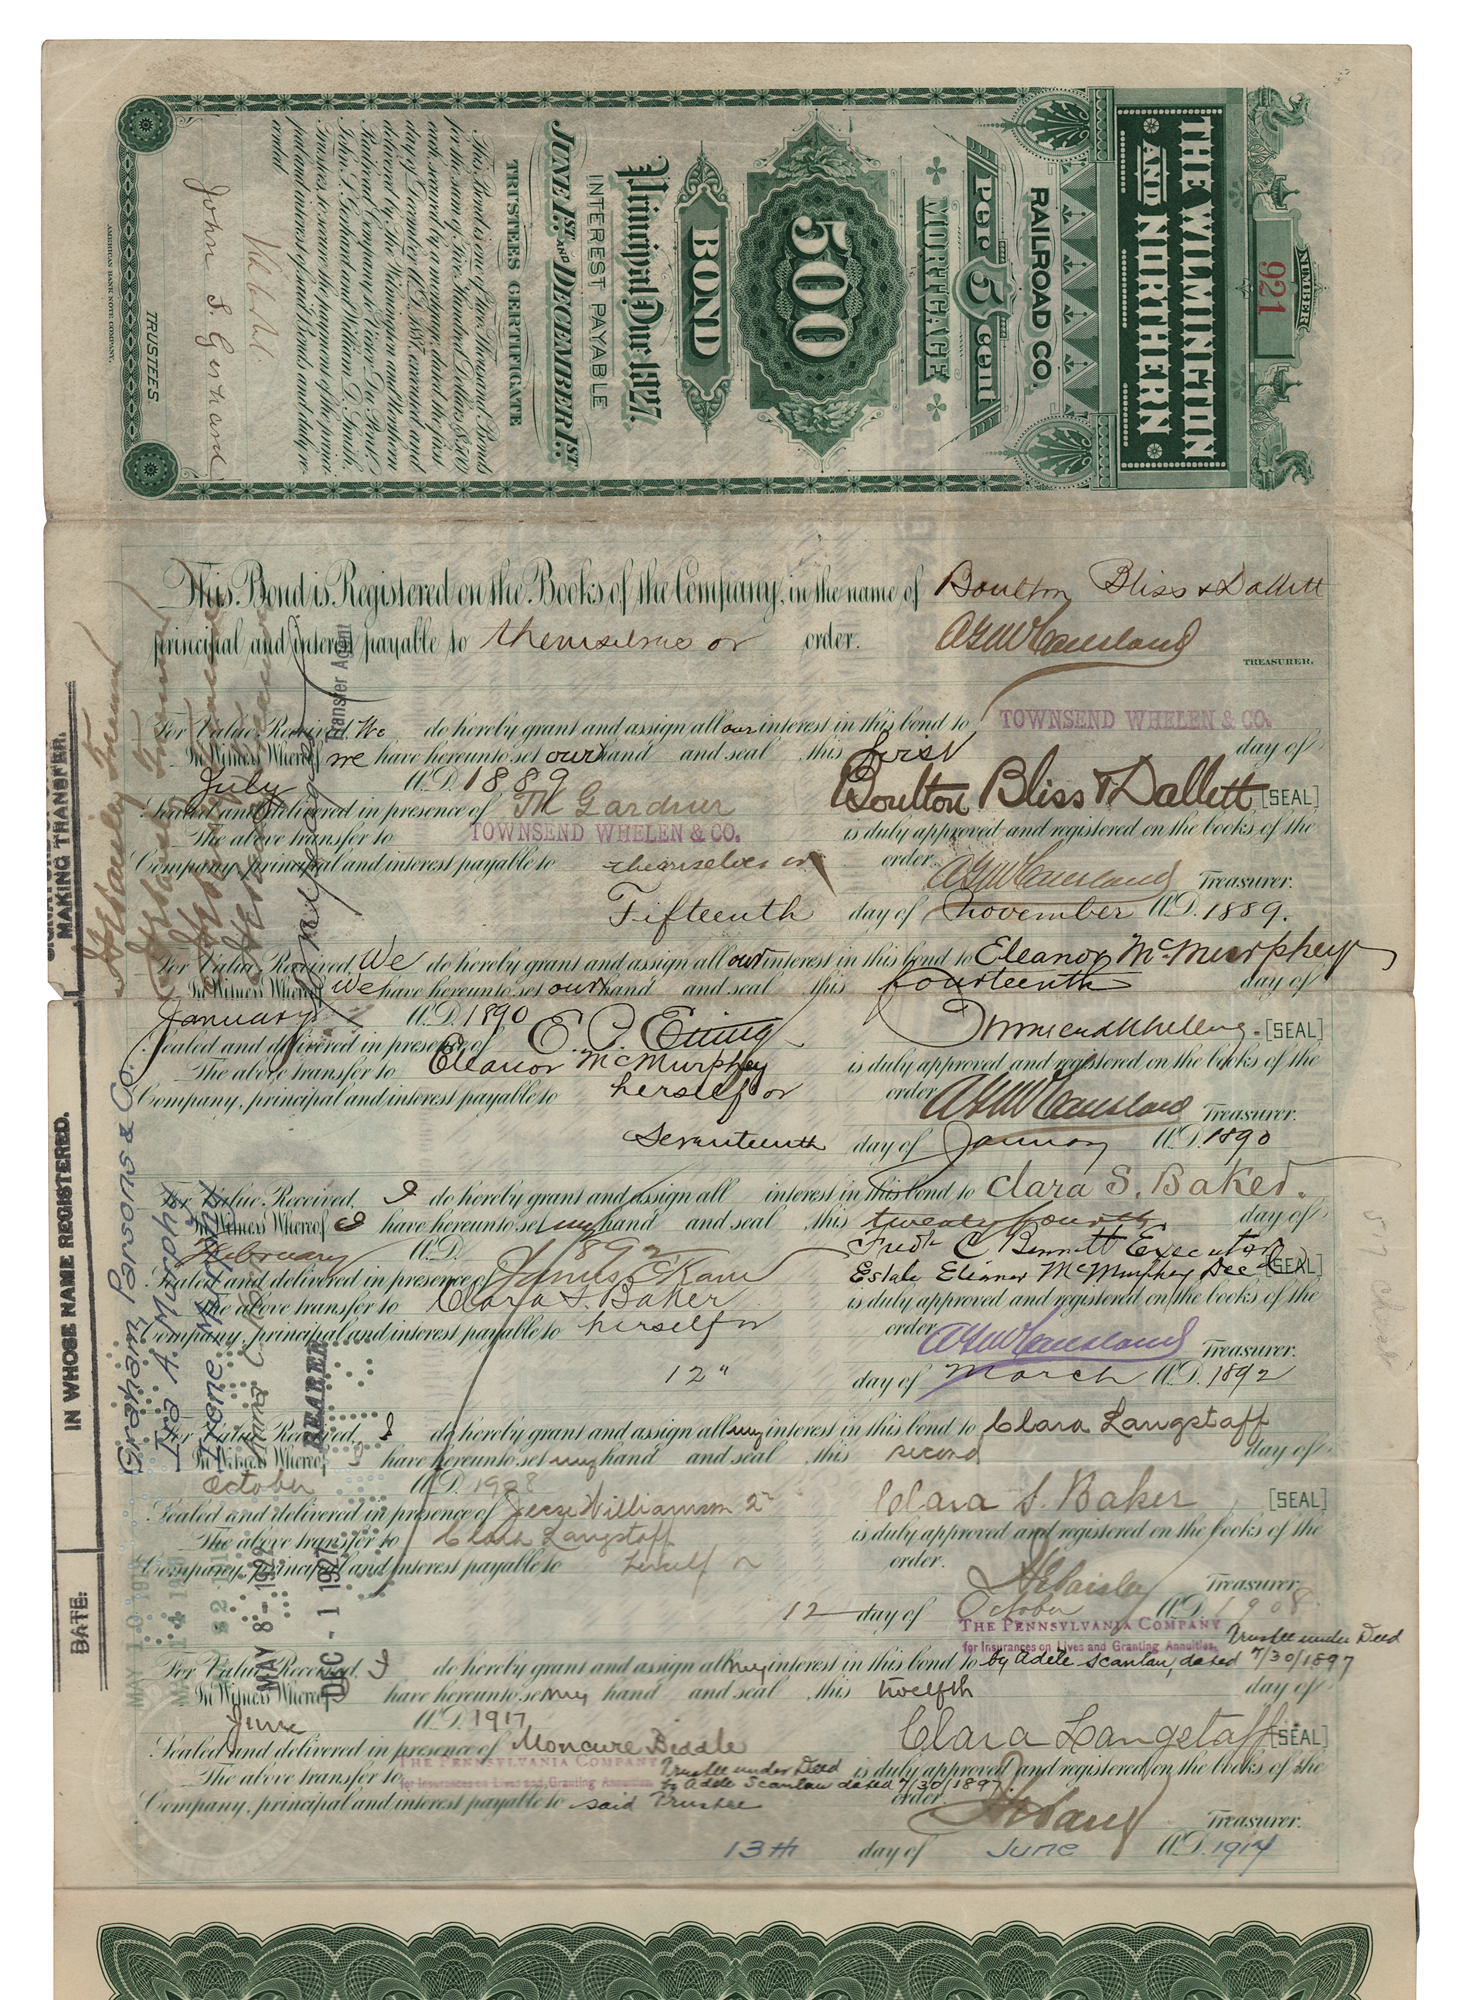 NUMBER
921
THE WILMINGTON
AND NORTHERN
RAILROAD CO.
5 Per cent
MORTGAGE
500
BOND
Principal Due 1927.
INTEREST PAYABLE
JUNE 1ST AND DECEMBER 1ST
TRUSTEES CERTIFICATE
This Bond is one of the Thousand Bonds
for the sum of Five Hundred Dollars $500
each, secured by a mortgage, dated the first
day of December A.D. 1887, executed and
delivered by The Wilmington and Northern
Railroad Company, to Victor Du Pont
John S. Gerhard and William D. Smith,
Trustees, to secure the payment of the princi-
pal and interest of said Bonds and duly re-
corded
John S. Gerhard
TRUSTEES
AMERICAN BANK NOTE COMPANY.
This Bond is Registered on the Books of the Company, in the name of Boulton Bliss & Dallett
principal and interest payable to themselves or order.
TREASURER.
For Value Received, We do hereby grant and assign all our interest in this bond to TOWNSEND WHELEN & CO.
In Witness Whereof we have hereunto set our hand and seal this first day of
July A.D. 1889 Boulton Bliss & Dallett [SEAL]
Sealed and delivered in presence of Gardner
The above transfer to TOWNSEND WHELEN & CO. is duly approved and registered on the books of the
Company, principal and interest payable to themselves or order.
Treasurer.
Fifteenth day of November A.D. 1889.
For Value Received, We do hereby grant and assign all our interest in this bond to Eleanor McMurphey
In Witness Whereof We have hereunto set our hand and seal this fourteenth day of
January A.D. 1890 [SEAL]
Sealed and delivered in presence of E. P.
The above transfer to Eleanor McMurphey is duly approved and registered on the books of the
Company, principal and interest payable to herself or order.
Treasurer.
Seventeenth day of January A.D. 1890
For Value Received, I do hereby grant and assign all interest in this bond to Clara S. Baker.
In Witness Whereof I have hereunto set my hand and seal this twenty fourth day of
February A.D. 1892 Fredk C Bennett Executor
Sealed and delivered in presence of James Estate Eleanor McMurphey Decd [SEAL]
The above transfer to Clara S. Baker is duly approved and registered on the books of the
Company, principal and interest payable to herself or order.
Treasurer.
12" day of March A.D. 1892
For Value Received, I do hereby grant and assign all my interest in this bond to Clara Langstaff
In Witness Whereof I have hereunto set my hand and seal this second day of
October A.D. 1908
Sealed and delivered in presence of Jesse Williamson 2nd Clara S. Baker [SEAL]
The above transfer to Clara Langstaff is duly approved and registered on the books of the
Company, principal and interest payable to herself or order.
Treasurer.
12 day of October A.D. 1908
THE PENNSYLVANIA COMPANY
for Insurances on Lives and Granting Annuities, Trustee under Deed
For Value Received, I do hereby grant and assign all my interest in this bond to by Adele Scanlan, dated 7/30/1897
In Witness Whereof I have hereunto set my hand and seal this twelfth day of
June A.D. 1917 Clara Langstaff [SEAL]
Sealed and delivered in presence of Moncure Biddle
The above transfer to THE PENNSYLVANIA COMPANY for Insurances on Lives and Granting Annuities Trustee under Deed by Adele Scanlan dated 7/30/1897. is duly approved and registered on the books of the
Company, principal and interest payable to said Trustee order.
Treasurer.
13th day of June A.D. 1917
MAKING TRANSFER.
IN WHOSE NAME REGISTERED.
DATE:
Transfer Agent
BEARER
MAY 8 - 1922
DEC - 1 1927